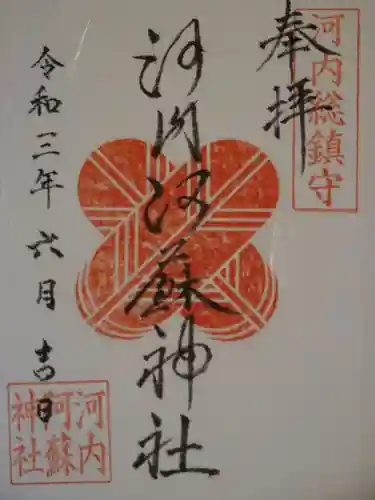 河内総鎮守
奉拝
河内阿蘇神社
令和三年六月吉日
河内
阿蘇
神社